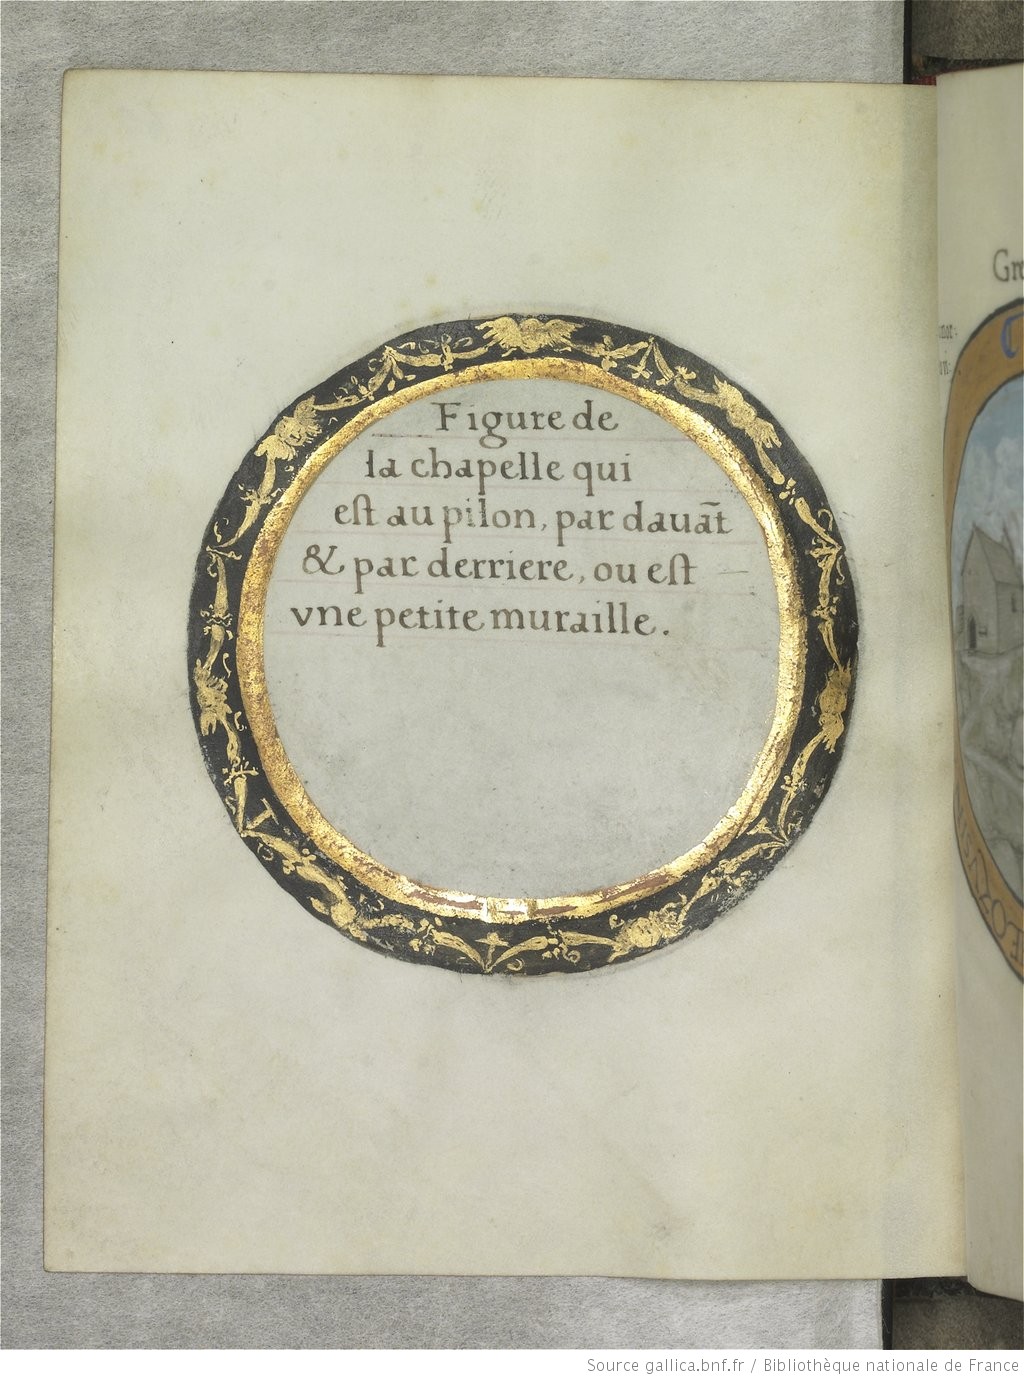 Figure de
la chapelle qui
est au pilon, par dauāt
& par derriere, ou est
vne petite muraille.
Gre
Source gallica.bnf.fr / Bibliothèque nationale de France